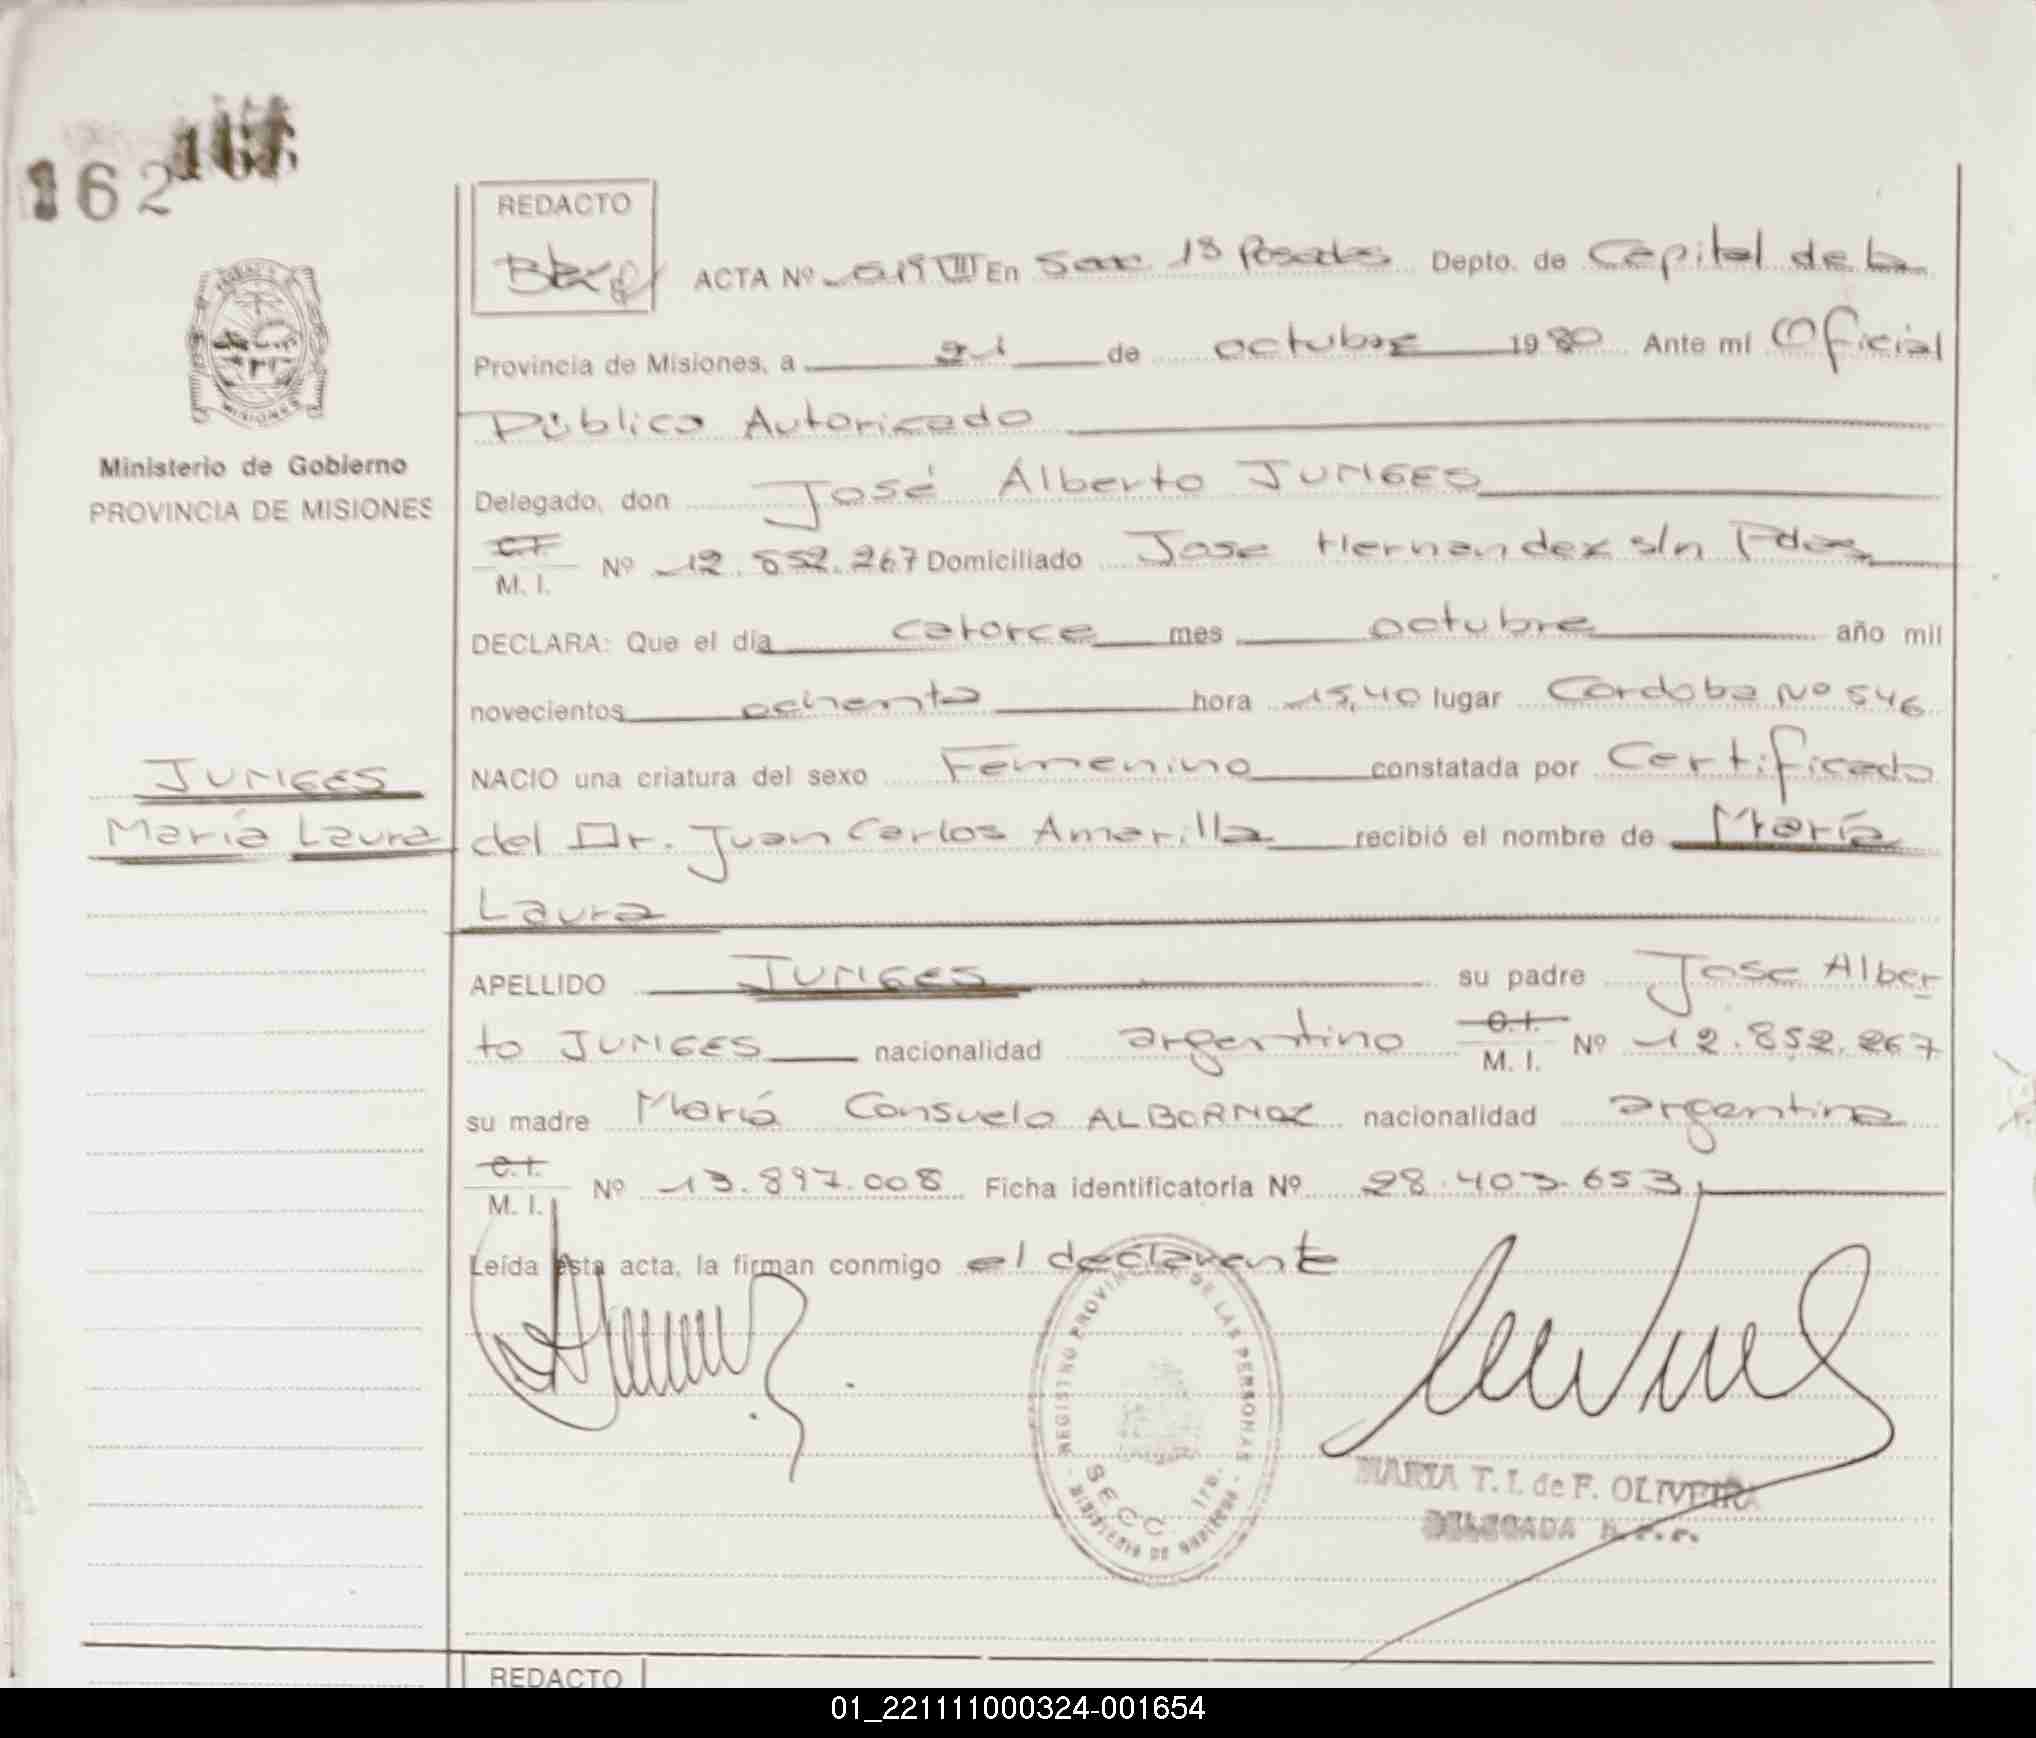 162
REDACTO
ACTA Nº 619 VIII En Secc 1ª Posadas Depto. de Capital de la
Provincia de Misiones, a 21 de octubre 1980 Ante mí Oficial
Público Autorizado
Ministerio de Gobierno
PROVINCIA DE MISIONES
Delegado, don José Alberto JUNGES
C.I.
M. I. Nº 12.852.267 Domiciliado Jose Hernandez s/n Pdas
DECLARA: Que el día catorce mes octubre año mil
novecientos ochenta hora 15,40 lugar Cordoba Nº 546
JUNGES
María Laura
NACIO una criatura del sexo Femenino constatada por Certificado
del Dr. Juan Carlos Amarilla recibió el nombre de María
Laura
APELLIDO JUNGES su padre Jose Alber
to JUNGES nacionalidad argentino C.I. M. I. Nº 12.852.267
su madre María Consuelo ALBORNOZ nacionalidad argentina
C.I.
M. I. Nº 13.897.008 Ficha identificatoria Nº 28.403.653
Leída esta acta, la firman conmigo el declarante
REGISTRO PROVINCIAL DE LAS PERSONAS
SECC. 1ra.
MINISTERIO DE GOBIERNO
MARIA T. I. de F. OLIVEIRA
DELEGADA R.P.P.
REDACTO
01_221111000324-001654